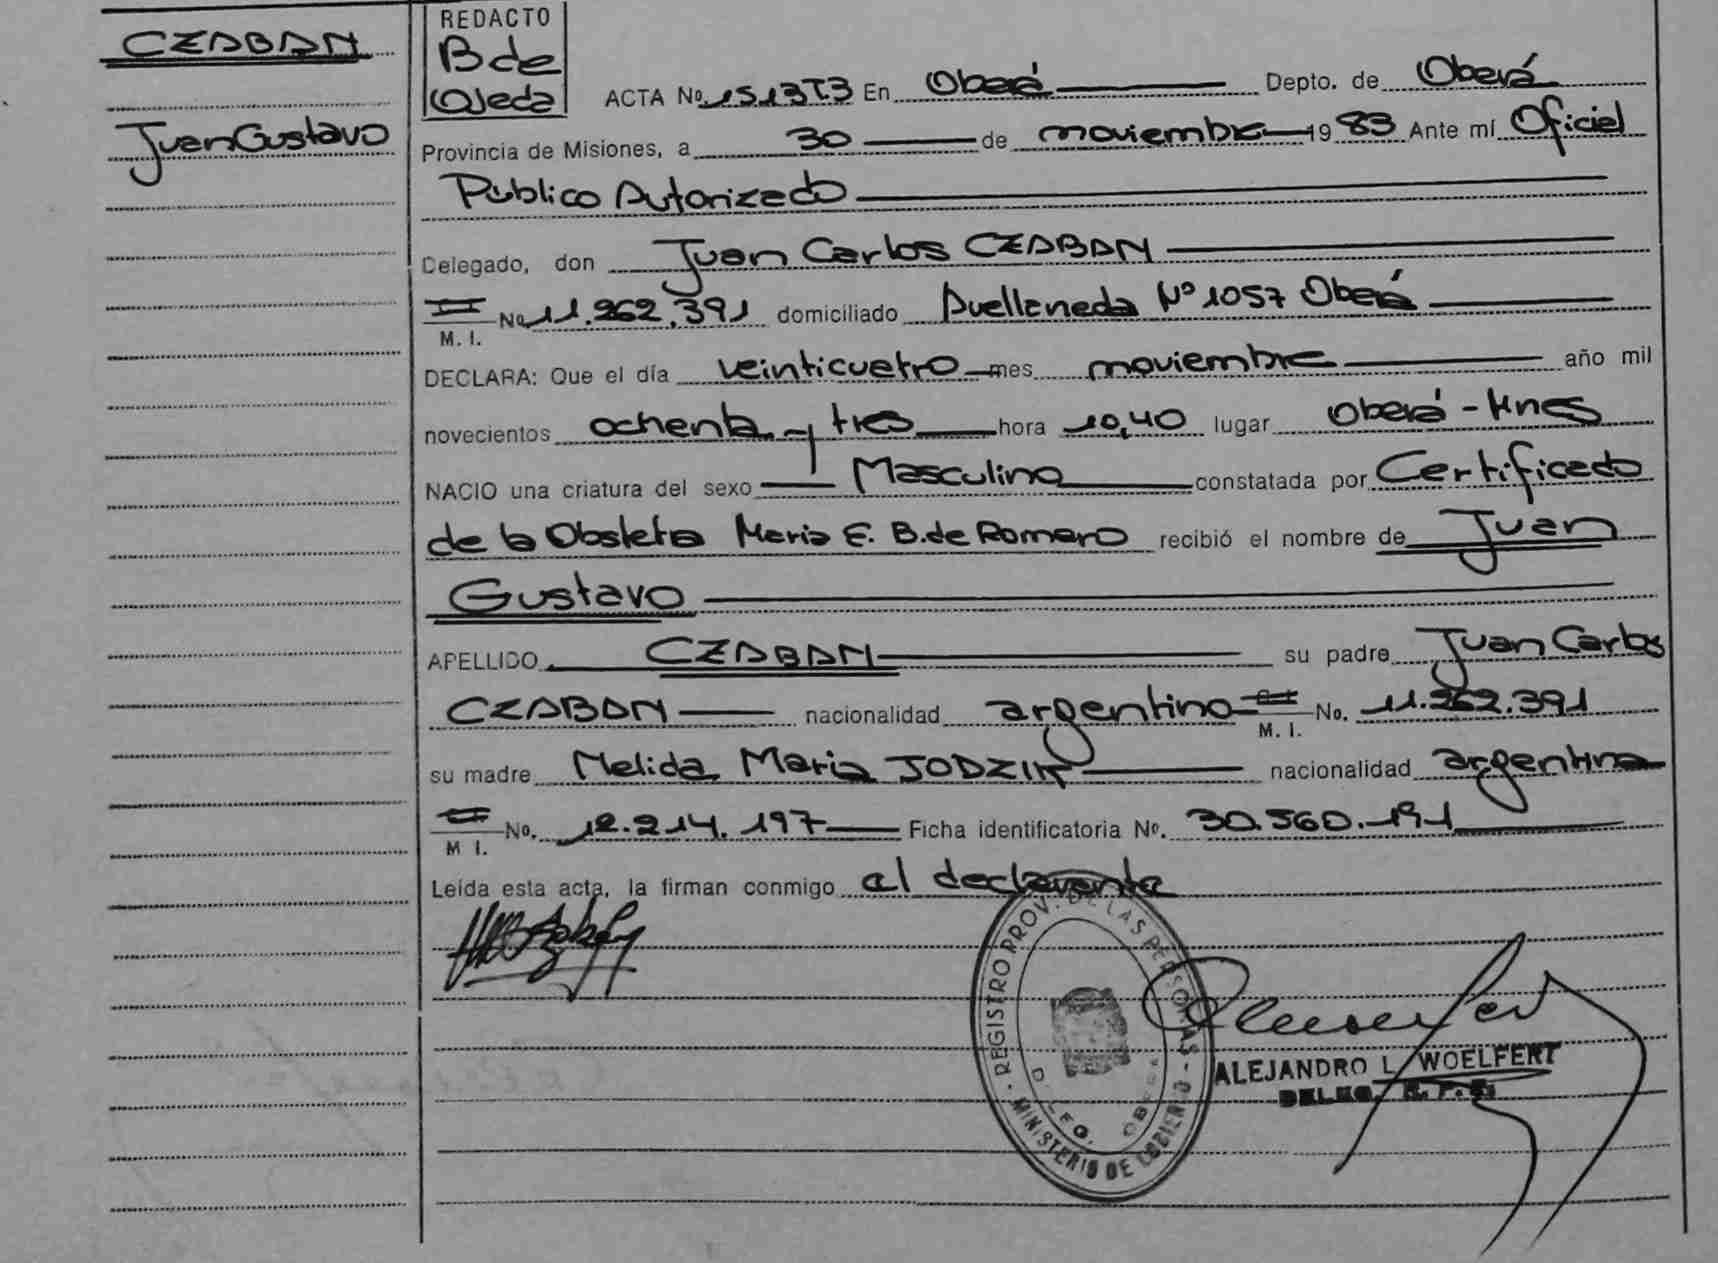 CZABAN
Juan Gustavo
REDACTO
B de
Ojeda
ACTA No. 1513T3 En Oberá Depto. de Oberá
Provincia de Misiones, a 30 de noviembre 19 83 Ante mí Oficial
Público Autorizado
Delegado, don Juan Carlos CZABAN
M. I. No 11.262.391 domiciliado Avellaneda Nº 1057 Oberá
DECLARA: Que el día veinticuatro mes noviembre año mil
novecientos ochenta y tres hora 10,40 lugar Oberá - Mnes
NACIO una criatura del sexo Masculino constatada por Certificado
de la Obsteta Maria E. B. de Romero recibió el nombre de Juan
Gustavo
APELLIDO CZABAN su padre Juan Carlos
CZABAN nacionalidad argentino M. I. No. 11.262.391
su madre Nelida Maria JODZIK nacionalidad argentina
M I. No. 12.214.197 Ficha identificatoria No. 30.560.191
Leída esta acta, la firman conmigo el declarante
REGISTRO PROV. DE LAS PERSONAS - MINISTERIO DE GOBIERNO
DELEG. OBERA
ALEJANDRO L. WOELFERT